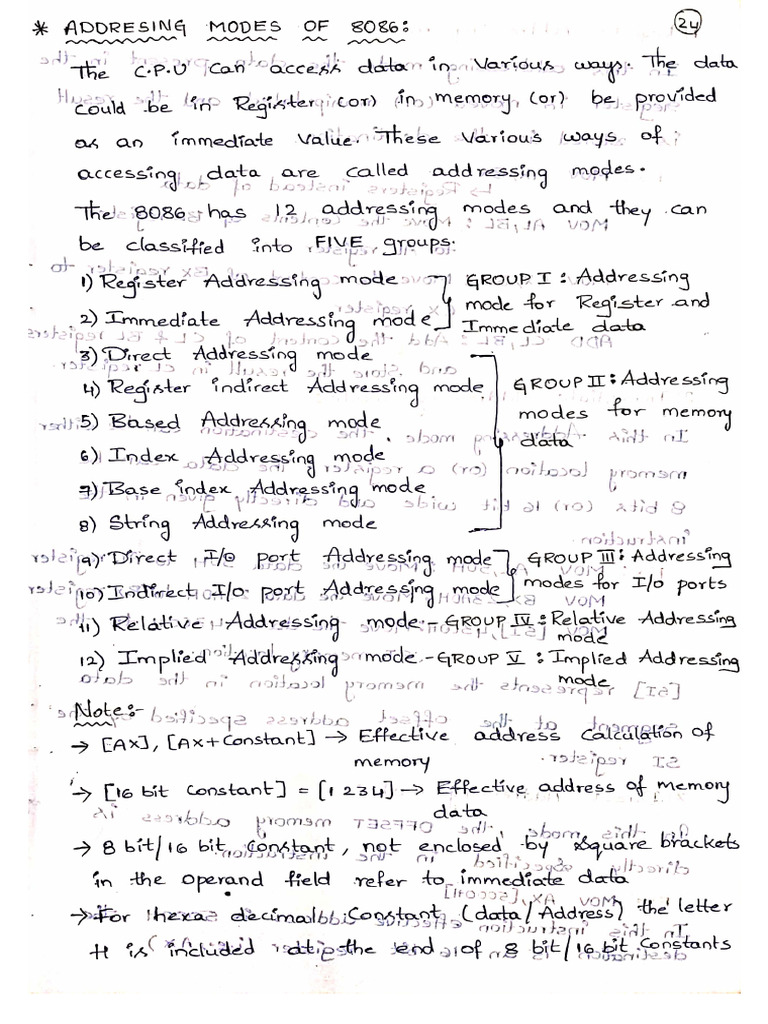 * ADDRESING MODES OF 8086:
24
The C.P.U can access data in various ways. The data
could be in Register (or) in memory (or) be provided
as an immediate value. These various ways of
accessing data are called addressing modes.
The 8086 has 12 addressing modes and they can
be classified into FIVE groups.
1) Register Addressing mode
2) Immediate Addressing mode
GROUP I : Addressing
mode for Register and
Immediate data
3) Direct Addressing mode
4) Register indirect Addressing mode
5) Based Addressing mode
6) Index Addressing mode
7) Base index Addressing mode
8) String Addressing mode
GROUP II : Addressing
modes for memory
data
9) Direct I/o port Addressing mode
10) Indirect I/o port Addressing mode
GROUP III : Addressing
modes for I/o ports
11) Relative Addressing mode - GROUP IV : Relative Addressing
mode
12) Implied Addressing mode - GROUP V : Implied Addressing
mode
Note:-
→ [AX], [AX+Constant] → Effective address calculation of
memory
→ [16 bit Constant] = [1234] → Effective address of memory
data
→ 8 bit/16 bit Constant, not enclosed by square brackets
in the operand field refer to immediate data
→ For hexa decimal Constant (data/Address) the letter
H is included at the end of 8 bit/16 bit Constants